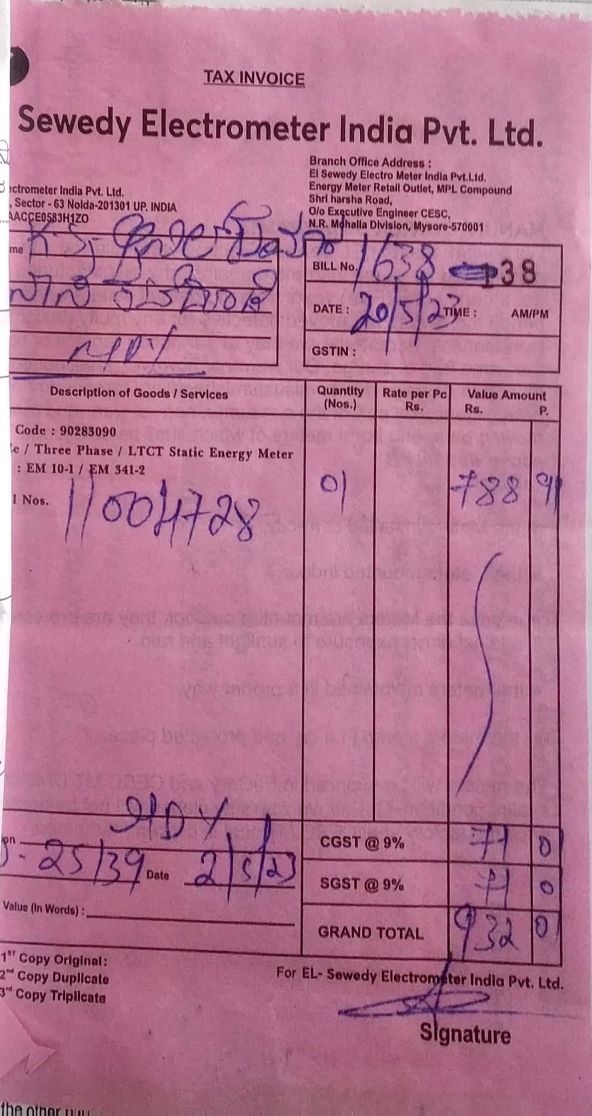 TAX INVOICE
Sewedy Electrometer India Pvt. Ltd.
ectrometer India Pvt. Ltd.
, Sector - 63 Noida-201301 UP. INDIA
AACCE0583H1ZO
Branch Office Address :
El Sewedy Electro Meter India Pvt.Ltd.
Energy Meter Retail Outlet, MPL Compound
Shri harsha Road,
O/o Executive Engineer CESC,
N.R. Mohalla Division, Mysore-570001
me
MDY
BILL No. 1638 38
DATE : 20/5/23 TIME : AM/PM
GSTIN :
Description of Goods / Services Quantity (Nos.) Rate per Pc Rs. Value Amount Rs. P.
Code : 90283090
e / Three Phase / LTCT Static Energy Meter
: EM 10-1 / EM 341-2
l Nos. 11004728 01 788 91
MDY
on
25/39 Date 2/5/23
Value (In Words) :
CGST @ 9% 71 0
SGST @ 9% 71 0
GRAND TOTAL 932 0
1st Copy Original:
2nd Copy Duplicate
3rd Copy Triplicate
For EL- Sewedy Electrometer India Pvt. Ltd.
Signature
the other